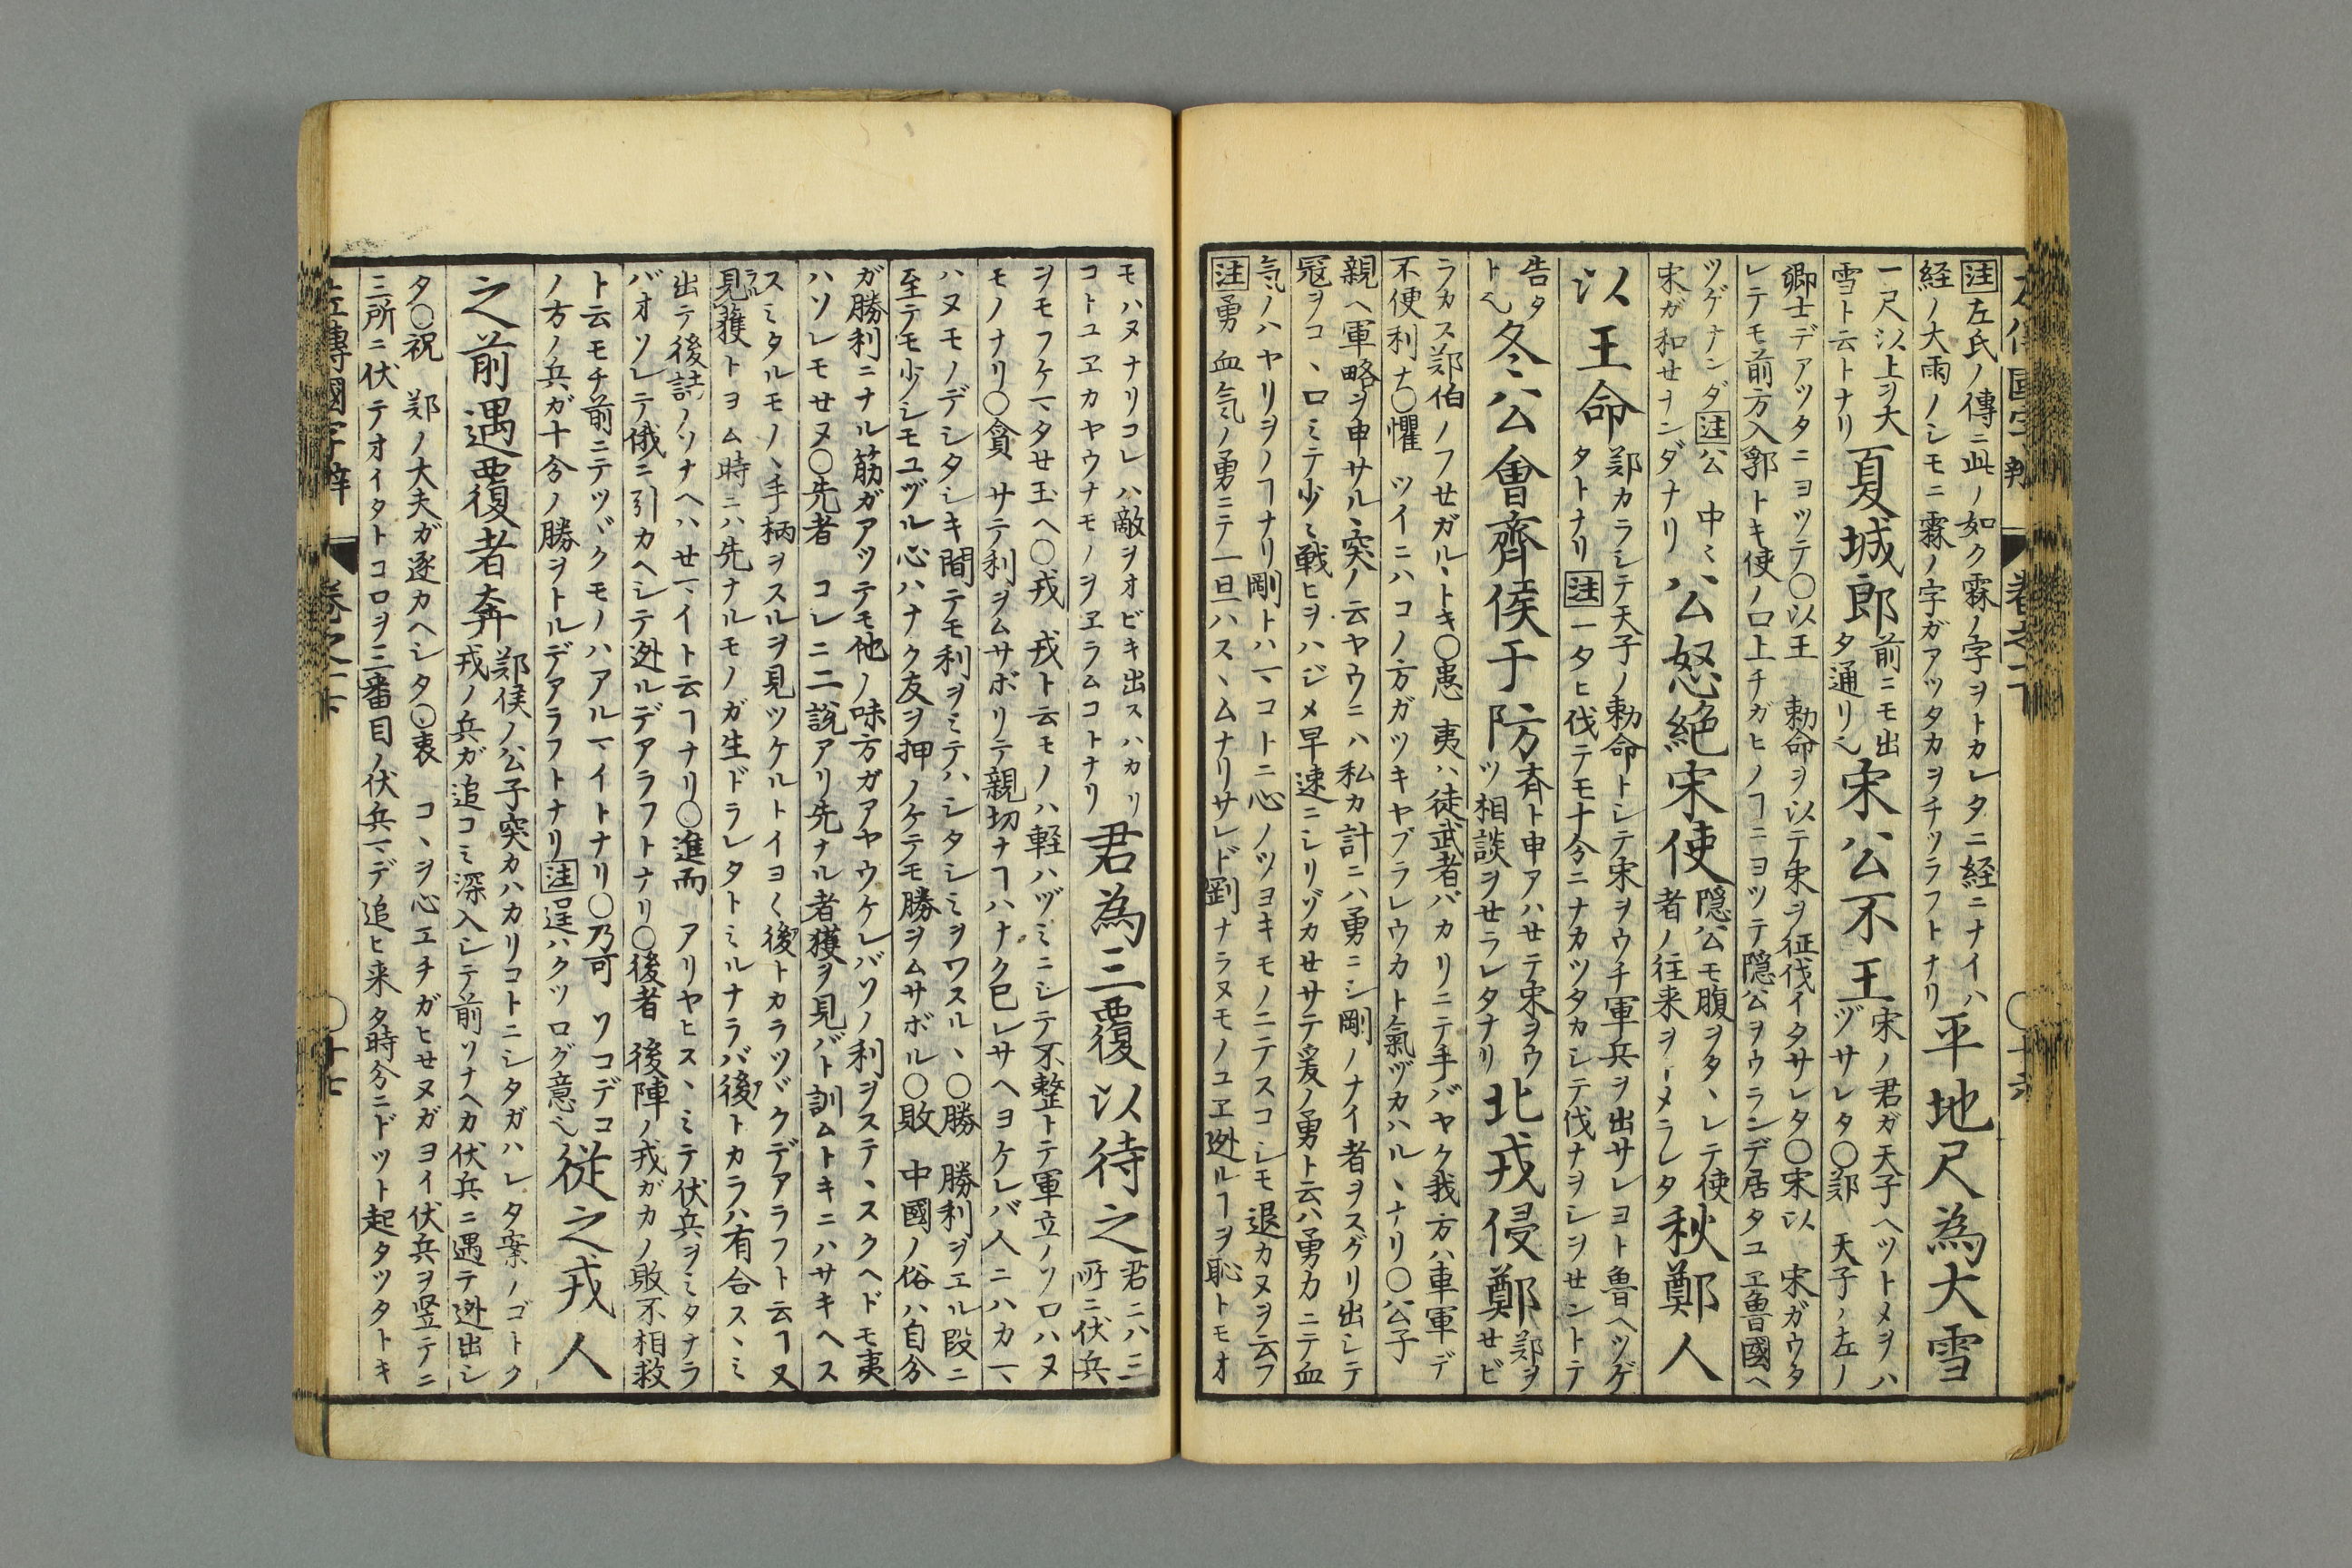 左傳國字辨 卷之一下 〇十六
注左氏ノ傳ニ此ノ如ク霖ノ字ヲトカレタニ経ニナイハ
経ノ大雨ノシモニ霖ノ字ガアツタカヲチツラフトナリ
平地尺為大雪
一尺以上ヲ大
雪ト云トナリ
夏城郎
前ニモ出
タ通リ也
宋公不王
宋ノ君ガ天子ヘツトメヲハ
ヅサレタ〇郑 天子ノ左ノ
卿士デアツタニヨツテ〇以王 勅命ヲ以テ宋ヲ征伐イタサレタ〇宋以 宋ガウタ
レテモ前方入郛トキ使ノ口上チガヒノヿニヨツテ隠公ヲウランデ居タユヱ魯國ヘ
ツゲナンダ注公 中ミ
宋ガ和せナンダナリ
公怒絶宋使
隠公モ腹ヲタヽレテ使
者ノ往来ヲヤメラレタ
秋鄭人
以王命
郑カラシテ天子ノ勅命トシテ宋ヲウチ軍兵ヲ出サレヨト魯ヘツゲ
タトナリ注一タヒ伐テモ十分ニナカツタカシテ伐ナヲシヲせントテ
告タ
ト也
冬公會齊侯于防
斉ト申アハせテ宋ヲウ
ツ相談ヲせラレタナリ
北戎侵鄭
郑ヲ
せビ
ラカス郑伯ノフせガルヽトキ〇患 夷ハ徒武者バカリニテ手バヤク我方ハ車軍デ
不便利ナ〇懼 ツイニハコノ方ガツキヤブラレウカト氣ヅカハルヽナリ〇公子
親ヘ軍略ヲ申サルヽ突ノ云ヤウニハ私カ計ニハ勇ニシ剛ノナイ者ヲスグリ出シテ
冦ヲコヽロミテ少ミ戦ヒヲハジメ早速ニシリゾカせサテ爰ノ勇ト云ハ勇力ニテ血
気ノハヤリヲノヿナリ剛トハマコトニ心ノツヨキモノニテスコシモ退カヌヲ云フ
注勇 血気ノ勇ニテ一旦ハスヽムナリサレド剛ナラヌモノユヱ迯ルヿヲ恥トモオ
モハヌナリコレハ敵ヲオビキ出スハカリ
コトユヱカヤウナモノヲヱラムコトナリ
君為三覆以待之
君ニハ三
所ニ伏兵
ヲモフケマタせ玉ヘ〇戎 戎ト云モノハ軽ハヅミニシテ不整トテ軍立ノソロハヌ
モノナリ〇貪 サテ利ヲムサボリテ親切ナヿハナク己レサヘヨケレバ人ニハカマヽ
ハヌモノデシタシキ間テモ利ヲミテハシタシミヲワスルヽ〇勝 勝利ヲエル段ニ
至テモ少シモユヅル心ハナク友ヲ押ノケテモ勝ヲムサボル〇敗 中國ノ俗ハ自分
ガ勝利ニナル筋ガアツテモ他ノ味方ガアヤウケレバソノ利ヲステヽスクヘドモ夷
ハソレモせヌ〇先者 コレニ二説アリ先ナル者獲ヲ見バト訓ムトキニハサキヘス
スミタルモノヽ手柄ヲスルヲ見ツケルトイヨ〱後トカラツヾクデアラフト云ヿ又
見獲トヨム時ニハ先ナルモノガ生ドラレタトミルナラバ後トカラハ有合スヽミ
出テ後詰ノソナヘハせマイト云ヿナリ〇進而 アリヤヒスヽミテ伏兵ヲミタナラ
バオソレテ俄ニ引カヘシテ迯ルデアラフトナリ〇後者 後陣ノ戎ガカノ敗不相救
ト云モチ前ニテツヾクモノハアルマイトナリ〇乃可 ソコデコ
ノ方ノ兵ガ十分ノ勝ヲトルデアラフトナリ注逞ハクツログ意也
従之戎人
之前遇覆者奔
郑侯ノ公子突カハカリコトニシタガハレタ案ノゴトク
戎ノ兵ガ追コミ深入シテ前ソナヘカ伏兵ニ遇テ迯出シ
タ〇祝 郑ノ大夫ガ逐カヘシタ〇衷 コヽヲ心エチガヒせヌガヨイ伏兵ヲ竖テニ
三所ニ伏テオイタトコロヲ三番目ノ伏兵マデ追ヒ来タ時分ニドツト起タツタトキ
左傳國字辨 卷之一下 〇十七